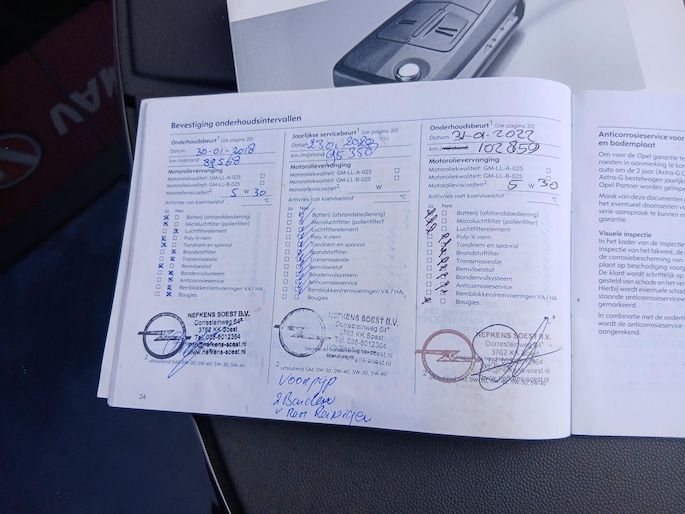 Bevestiging onderhoudsintervallen
Onderhoudsbeurt¹ (zie pagina 20)
Datum 30-01-2018
km-/mijlstand 89568
Motorolievervanging
Motoroliekwaliteit: GM-LL-A-025
Motoroliekwaliteit: GM-LL-B-025
Motorolieviscositeit² 5 W 30
Antivries van koelvloeistof °C
Ja Nee
Batterij (afstandsbediening)
Microluchtfilter (pollenfilter)
Luchtfilterelement
Poly-V-riem
Tandriem en spanrol
Brandstoffilter
Transmissieolie
Remvloeistof
Bandenvulsysteem
Anticorrosieservice
Remblokken/remvoeringen VA / HA
Bougies
NEFKENS SOEST B.V.
Dorresteinweg 64ᵃ
3762 KK Soest
Tel. 035-6012364
info@nefkens-soest.nl
www.nefkens-soest.nl
24
Jaarlijkse servicebeurt¹ (zie pagina 20)
Datum
km/mijlstand 95350
Motorolievervanging
Motoroliekwaliteit: GM-LL-A-025
Motoroliekwaliteit: GM-LL-B-025
Motorolieviscositeit² W
Antivries van koelvloeistof °C
Ja Nee
Batterij (afstandsbediening)
Microluchtfilter (pollenfilter)
Luchtfilterelement
Poly-V-riem
Tandriem en spanrol
Brandstoffilter
Transmissieolie
Remvloeistof
Bandenvulsysteem
Anticorrosieservice
Remblokken/remvoeringen VA / HA
Bougies
NEFKENS SOEST B.V.
Dorresteinweg 64ᵃ
3762 KK Soest
Tel. 035-6012364
Voorpijp
2 Banden
Rem Reinigen
Onderhoudsbeurt¹ (zie pagina 20)
Datum 31-01-2022
102850
Motorolievervanging
Motoroliekwaliteit: GM-LL-A-025
Motoroliekwaliteit: GM-LL-B-025
Motorolieviscositeit² 5 W 30
Antivries van koelvloeistof °C
Ja Nee
Batterij (afstandsbediening)
Microluchtfilter (pollenfilter)
Luchtfilterelement
Poly-V-riem
Tandriem en spanrol
Brandstoffilter
Transmissieolie
Remvloeistof
Bandenvulsysteem
Anticorrosieservice
Remblokken/remvoeringen VA/HA
Bougies
NEFKENS SOEST B.V.
Anticorrosieservice voor
en bodemplaat
Om voor de Opel garantie te
roesten in aanmerking te kom
auto om de 2 jaar (Astra-G C
Astra-G bestelwagen: jaarlijk
Opel Partner worden geïnsp
Maak van deze documenten
het eventueel doorroesten va
serie aanspraak te kunnen m
garantie.
Visuele inspectie
In het kader van de inspectie
inspectie van het lakwerk, de
de corrosiebescherming van
plaat op beschadiging voorg
De klant wordt schriftelijk op
gesteld van schade en het ve
Hierbij wordt eventuele schad
staande anticorrosieservicew
gemarkeerd.
In combinatie met de onderh
wordt de anticorrosieservice
aangerekend.